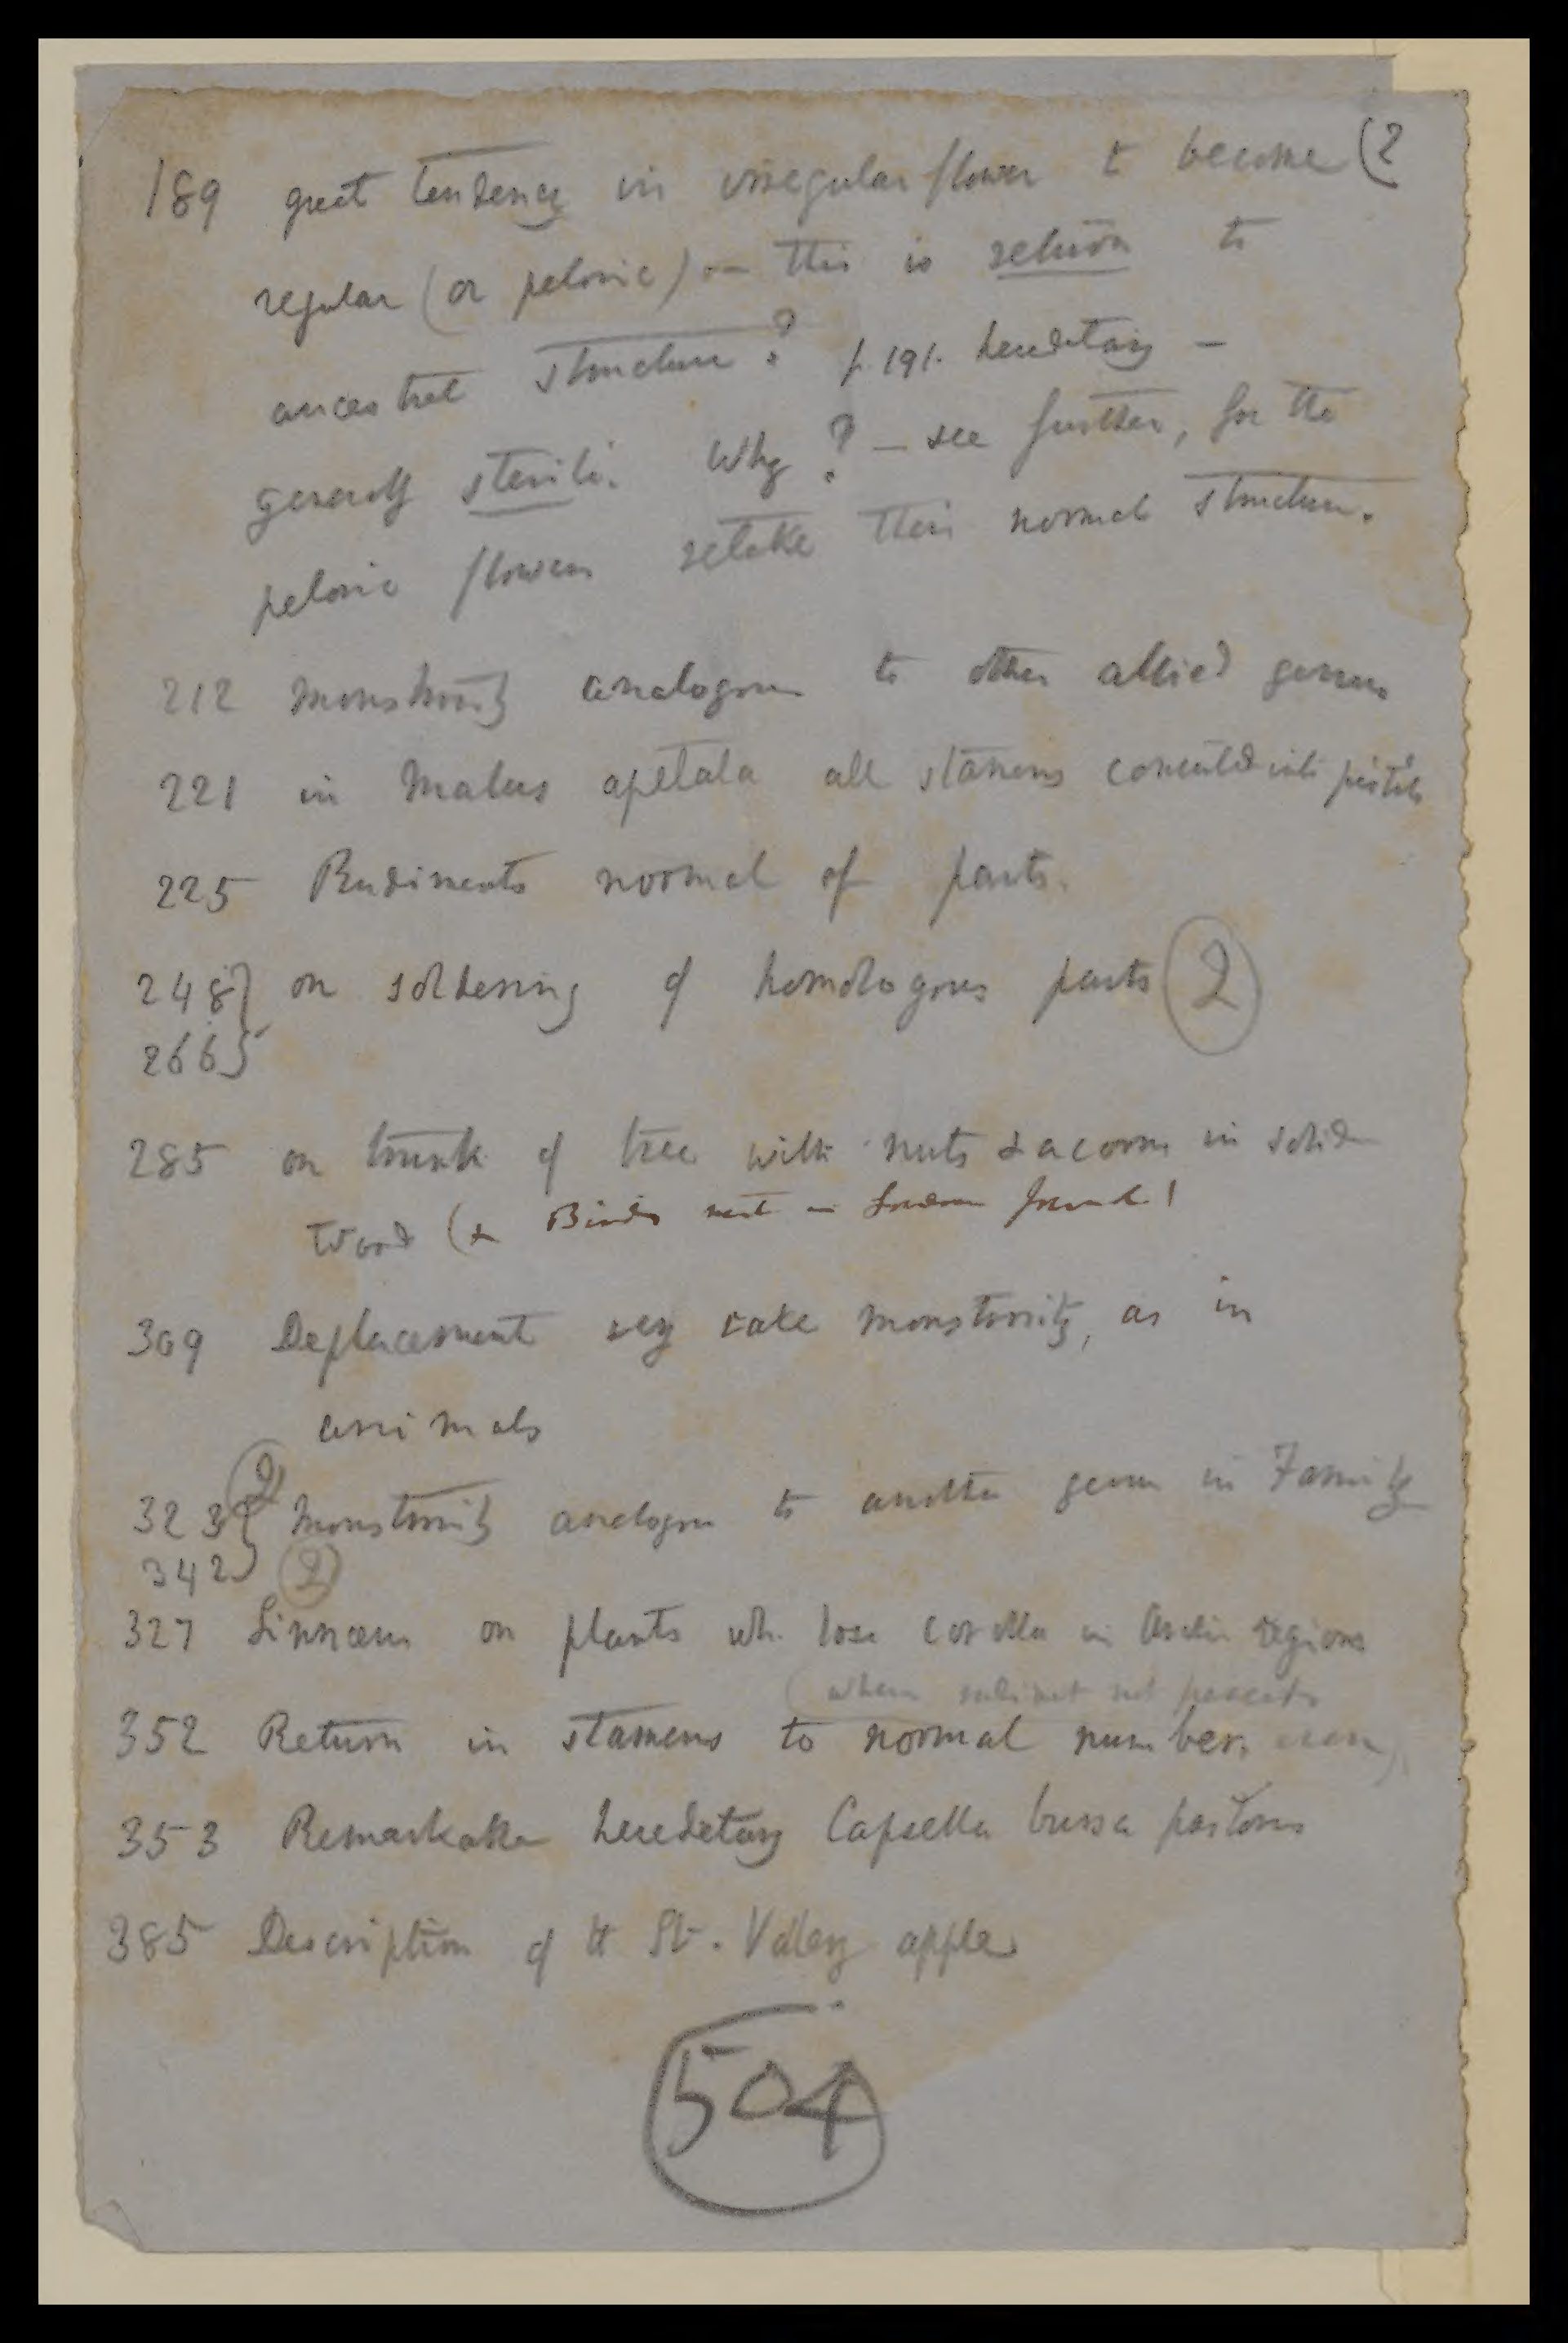 189 great tendency in irregular flower to become (2
regular (or peloric) — this is return to
ancestral structure? p. 191. hereditary —
generally sterile. Why? — see further, for the
peloric flowers retake their normal structure.
212 Monstrosity analogous to other allied genus
221 in Malus apetala all stamens converted into pistils
225 Rudiments normal of parts.
248} on soldering of homologous parts (2)
266}
285 on trunk of tree with nuts & acorns in solid
Wood (& Birds nest in found!
309 Deplacement very rare monstrosity, as in
animals
(2)
323} Monstrosity analogous to another genus in Family
342} (2)
327 Linnæus on plants wh. lose corolla in Arctic regions
(when rudiment not present
352 Return in stamens to normal number. even)
353 Remarkable hereditary Capsella bursa pastoris
385 Description of St. Valery apple
504